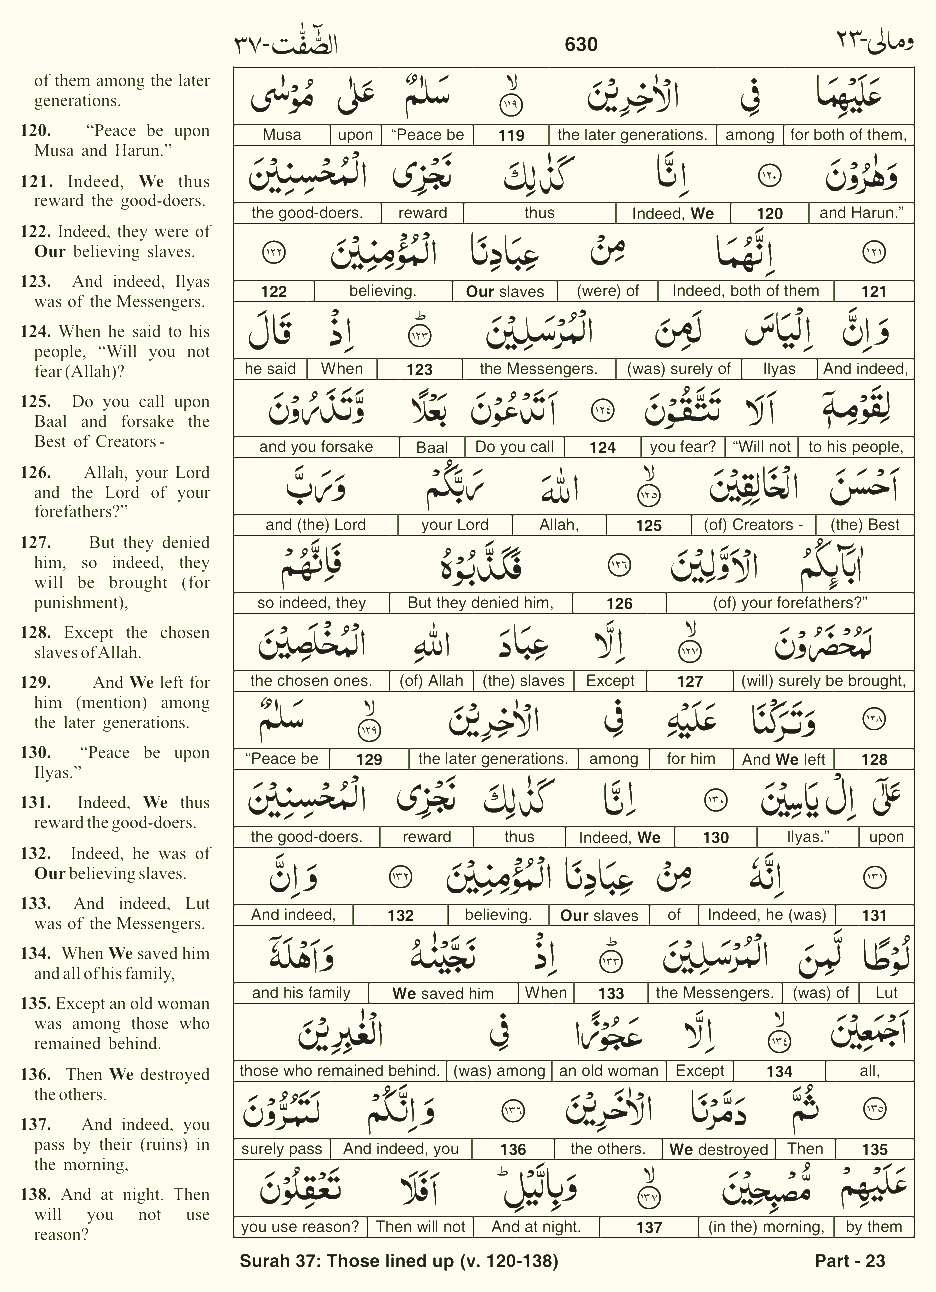 الصّٰٓفّٰت-٣٧ 630 ومالى-٢٣
of them among the later
generations.
120. “Peace be upon
Musa and Harun.”
121. Indeed, We thus
reward the good-doers.
122. Indeed, they were of
Our believing slaves.
123. And indeed, Ilyas
was of the Messengers.
124. When he said to his
people, “Will you not
fear (Allah)?
125. Do you call upon
Baal and forsake the
Best of Creators -
126. Allah, your Lord
and the Lord of your
forefathers?”
127. But they denied
him, so indeed, they
will be brought (for
punishment),
128. Except the chosen
slaves of Allah.
129. And We left for
him (mention) among
the later generations.
130. “Peace be upon
Ilyas.”
131. Indeed, We thus
reward the good-doers.
132. Indeed, he was of
Our believing slaves.
133. And indeed, Lut
was of the Messengers.
134. When We saved him
and all of his family,
135. Except an old woman
was among those who
remained behind.
136. Then We destroyed
the others.
137. And indeed, you
pass by their (ruins) in
the morning,
138. And at night. Then
will you not use
reason?
عَلَيْهِمَا فِي الْاٰخِرِيْنَ ۙ۱۱۹ سَلٰمٌ عَلٰى مُوْسٰى
Musa upon “Peace be 119 the later generations. among for both of them,
وَهٰرُوْنَ ۱۲۰ اِنَّا كَذٰلِكَ نَجْزِى الْمُحْسِنِيْنَ
the good-doers. reward thus Indeed, We 120 and Harun.”
۱۲۱ اِنَّهُمَا مِنْ عِبَادِنَا الْمُؤْمِنِيْنَ ۱۲۲
122 believing. Our slaves (were) of Indeed, both of them 121
وَاِنَّ اِلْيَاسَ لَمِنَ الْمُرْسَلِيْنَ ؕ۱۲۳ اِذْ قَالَ
he said When 123 the Messengers. (was) surely of Ilyas And indeed,
لِقَوْمِهٖٓ اَلَا تَتَّقُوْنَ ۱۲۴ اَتَدْعُوْنَ بَعْلًا وَّتَذَرُوْنَ
and you forsake Baal Do you call 124 you fear? “Will not to his people,
اَحْسَنَ الْخَالِقِيْنَ ۙ۱۲۵ اللّٰهَ رَبَّكُمْ وَرَبَّ
and (the) Lord your Lord Allah, 125 (of) Creators - (the) Best
اٰبَآئِكُمُ الْاَوَّلِيْنَ ۱۲۶ فَكَذَّبُوْهُ فَاِنَّهُمْ
so indeed, they But they denied him, 126 (of) your forefathers?”
لَمُحْضَرُوْنَ ۙ۱۲۷ اِلَّا عِبَادَ اللّٰهِ الْمُخْلَصِيْنَ
the chosen ones. (of) Allah (the) slaves Except 127 (will) surely be brought,
۱۲۸ وَتَرَكْنَا عَلَيْهِ فِي الْاٰخِرِيْنَ ۙ۱۲۹ سَلٰمٌ
“Peace be 129 the later generations. among for him And We left 128
عَلٰٓى اِلْ يَاسِيْنَ ۱۳۰ اِنَّا كَذٰلِكَ نَجْزِى الْمُحْسِنِيْنَ
the good-doers. reward thus Indeed, We 130 Ilyas.” upon
۱۳۱ اِنَّهٗ مِنْ عِبَادِنَا الْمُؤْمِنِيْنَ ۱۳۲ وَاِنَّ
And indeed, 132 believing. Our slaves of Indeed, he (was) 131
لُوْطًا لَّمِنَ الْمُرْسَلِيْنَ ؕ۱۳۳ اِذْ نَجَّيْنٰهُ وَاَهْلَهٗٓ
and his family We saved him When 133 the Messengers. (was) of Lut
اَجْمَعِيْنَ ۙ۱۳۴ اِلَّا عَجُوْزًا فِي الْغٰبِرِيْنَ
those who remained behind. (was) among an old woman Except 134 all,
۱۳۵ ثُمَّ دَمَّرْنَا الْاٰخَرِيْنَ ۱۳۶ وَاِنَّكُمْ لَتَمُرُّوْنَ
surely pass And indeed, you 136 the others. We destroyed Then 135
عَلَيْهِمْ مُّصْبِحِيْنَ ۙ۱۳۷ وَبِالَّيْلِ ؕ اَفَلَا تَعْقِلُوْنَ
you use reason? Then will not And at night. 137 (in the) morning, by them
Surah 37: Those lined up (v. 120-138) Part - 23